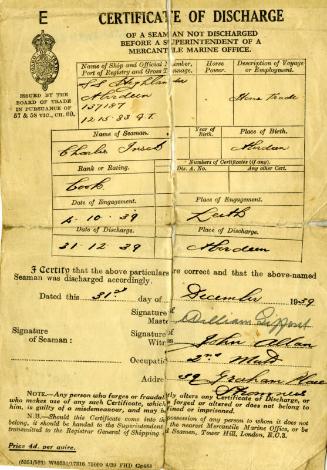 E
CERTIFICATE OF DISCHARGE
OF A SEAMAN NOT DISCHARGED
BEFORE A SUPERINTENDENT OF A
MERCANTILE MARINE OFFICE.
ISSUED BY THE
BOARD OF TRADE
IN PURSUANCE OF
57 & 58 VIC., CH. 60.
Name of Ship and Official Number,
Port of Registry and Gross Tonnage.
Horse
Power.
Description of Voyage
or Employment.
SS Highlander
Aberdeen
137187
1215.83 GT.
Home Trade
Name of Seaman.
Year of
Birth.
Place of Birth.
Charles
Aberdeen
Rank or Rating.
Numbers of Certificates (if any).
Dis. A. No.
Any other Cert.
Cook
Date of Engagement.
Place of Engagement.
4.10.39
Leith
Date of Discharge.
Place of Discharge.
31.12.39
Aberdeen
I Certify that the above particulars are correct and that the above-named
Seaman was discharged accordingly.
Dated this 31st day of December 1939
Signature of
Master William
Signature of
Seaman :
Signature of
Witness John Allan
Occupation 2nd Mate
Address 39
NOTE.—Any person who forges or fraudulently alters any Certificate of Discharge, or
who makes use of any such Certificate, which does not belong to
him, is guilty of a misdemeanour, and may be fined or imprisoned.
N.B.—Should this Certificate come into the possession of any person to whom it does not
belong, it should be handed to the Superintendent of the nearest Mercantile Marine Office, or be
transmitted to the Registrar General of Shipping & Seamen, Tower Hill, London, E.C.3.
Price 4d. per quire.